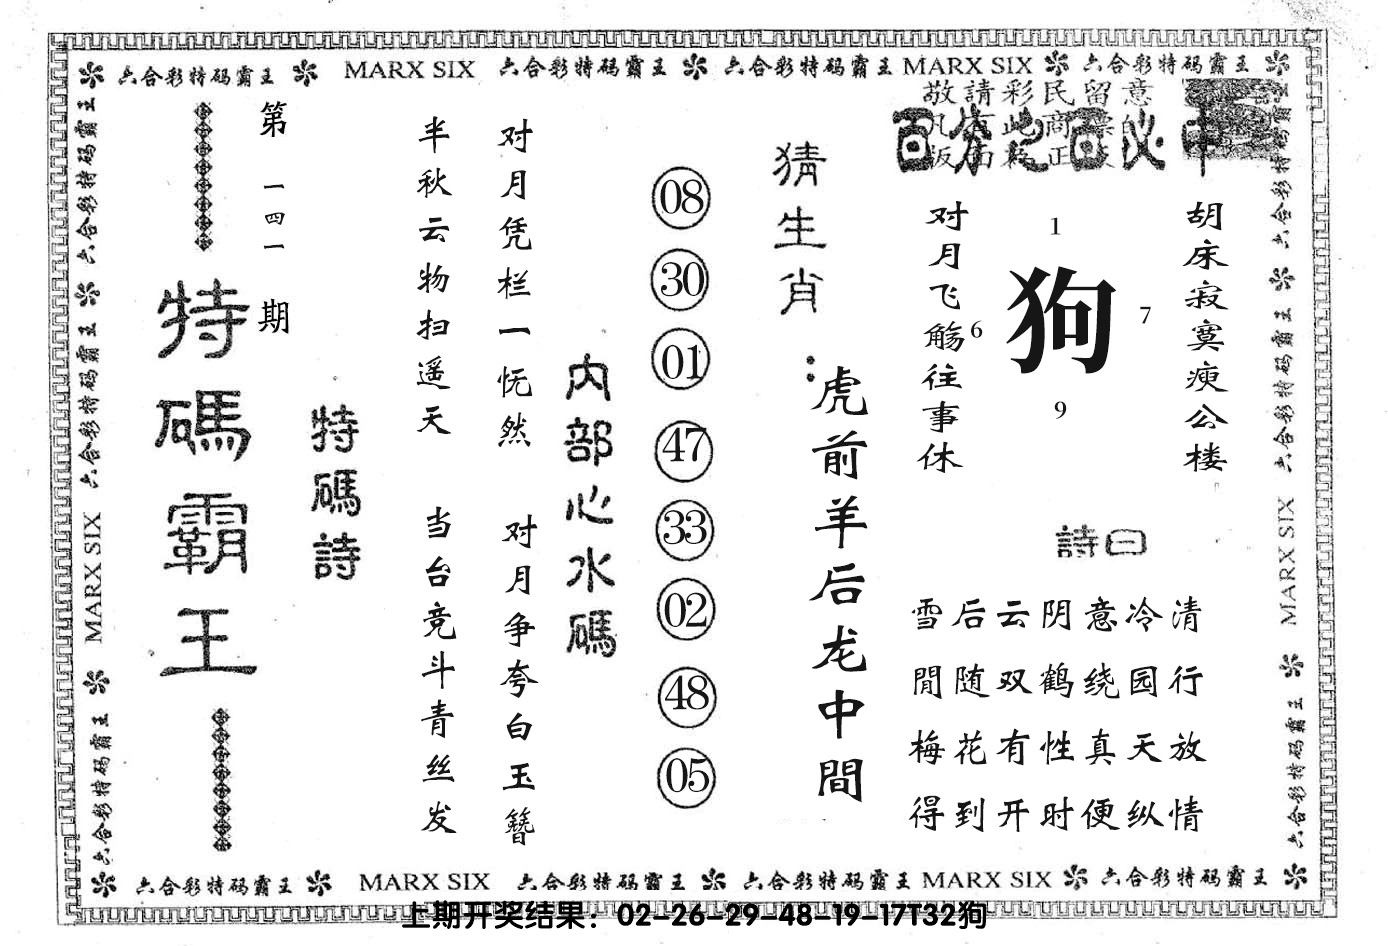 六合彩特码霸王 MARX SIX 六合彩特码霸王 六合彩特码霸王 MARX SIX 六合彩特码霸王
敬請彩民留意
百分之百必中
胡床寂寞庾公楼
对月飞觞往事休
1
6
狗
7
9
詩曰
雪后云阴意冷清
閒随双鹤绕园行
梅花有性真天放
得到开时便纵情
猜生肖：
虎前羊后龙中間
08
30
01
47
33
02
48
05
内部心水碼
对月凭栏一怃然
半秋云物扫遥天
对月争夸白玉簪
当台竞斗青丝发
特碼詩
第一四一期
特碼霸王
六合彩特码霸王
六合彩特码霸王
MARX SIX
六合彩特码霸王
六合彩特码霸王
六合彩特码霸王
MARX SIX
六合彩特码霸王
六合彩特码霸王 MARX SIX 六合彩特码霸王 六合彩特码霸王 MARX SIX 六合彩特码霸王
上期开奖结果：02-26-29-48-19-17T32狗